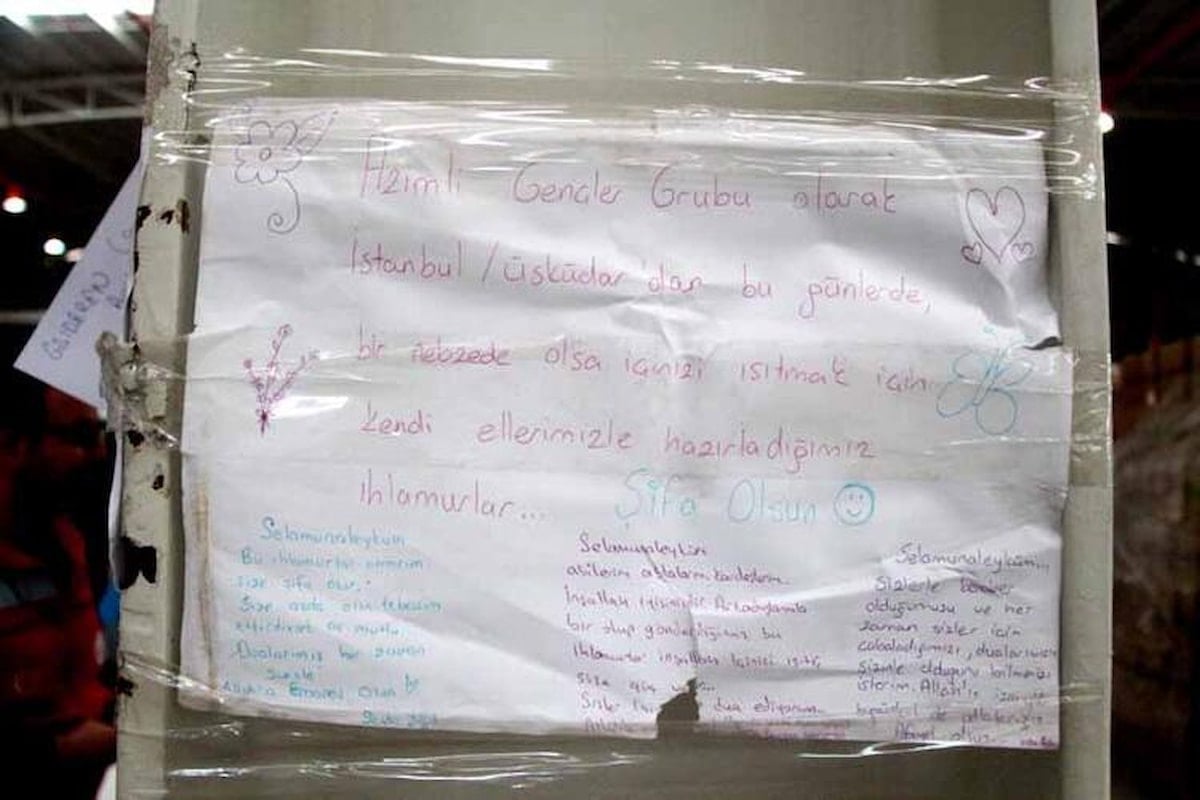 Azimli Gençler Grubu olarak
İstanbul / üsküdar'dan bu günlerde,
bir nebzede olsa içinizi ısıtmak için
kendi ellerimizle hazırladığımız
ıhlamurlar... Şifa Olsun
Selamunaleyküm
Bu ıhlamurlar
size şifa olur.
Size azda olsa tebessüm
ettirdiysek ne mutlu.
Dualarımız her zaman
Sizinle
Allah'a Emanet Olun
Selamunaleyküm
abilerim ablalarım kardeşlerim
İnşallah iyisinizdir. Arkadaşlarımla
bir olup gönderdiğimiz bu
ıhlamurlar inşallah içinizi ısıtır,
size
Sizler için dua ediyorum
Selamunaleyküm...
Sizlerle beraber
olduğumuzu ve her
zaman sizler için
çabaladığımızı, dualarımızın
sizinle olduğunu bilmenizi
isterim. Allah'ın izni ile
Afiyet olsun.
GÖNDEREN